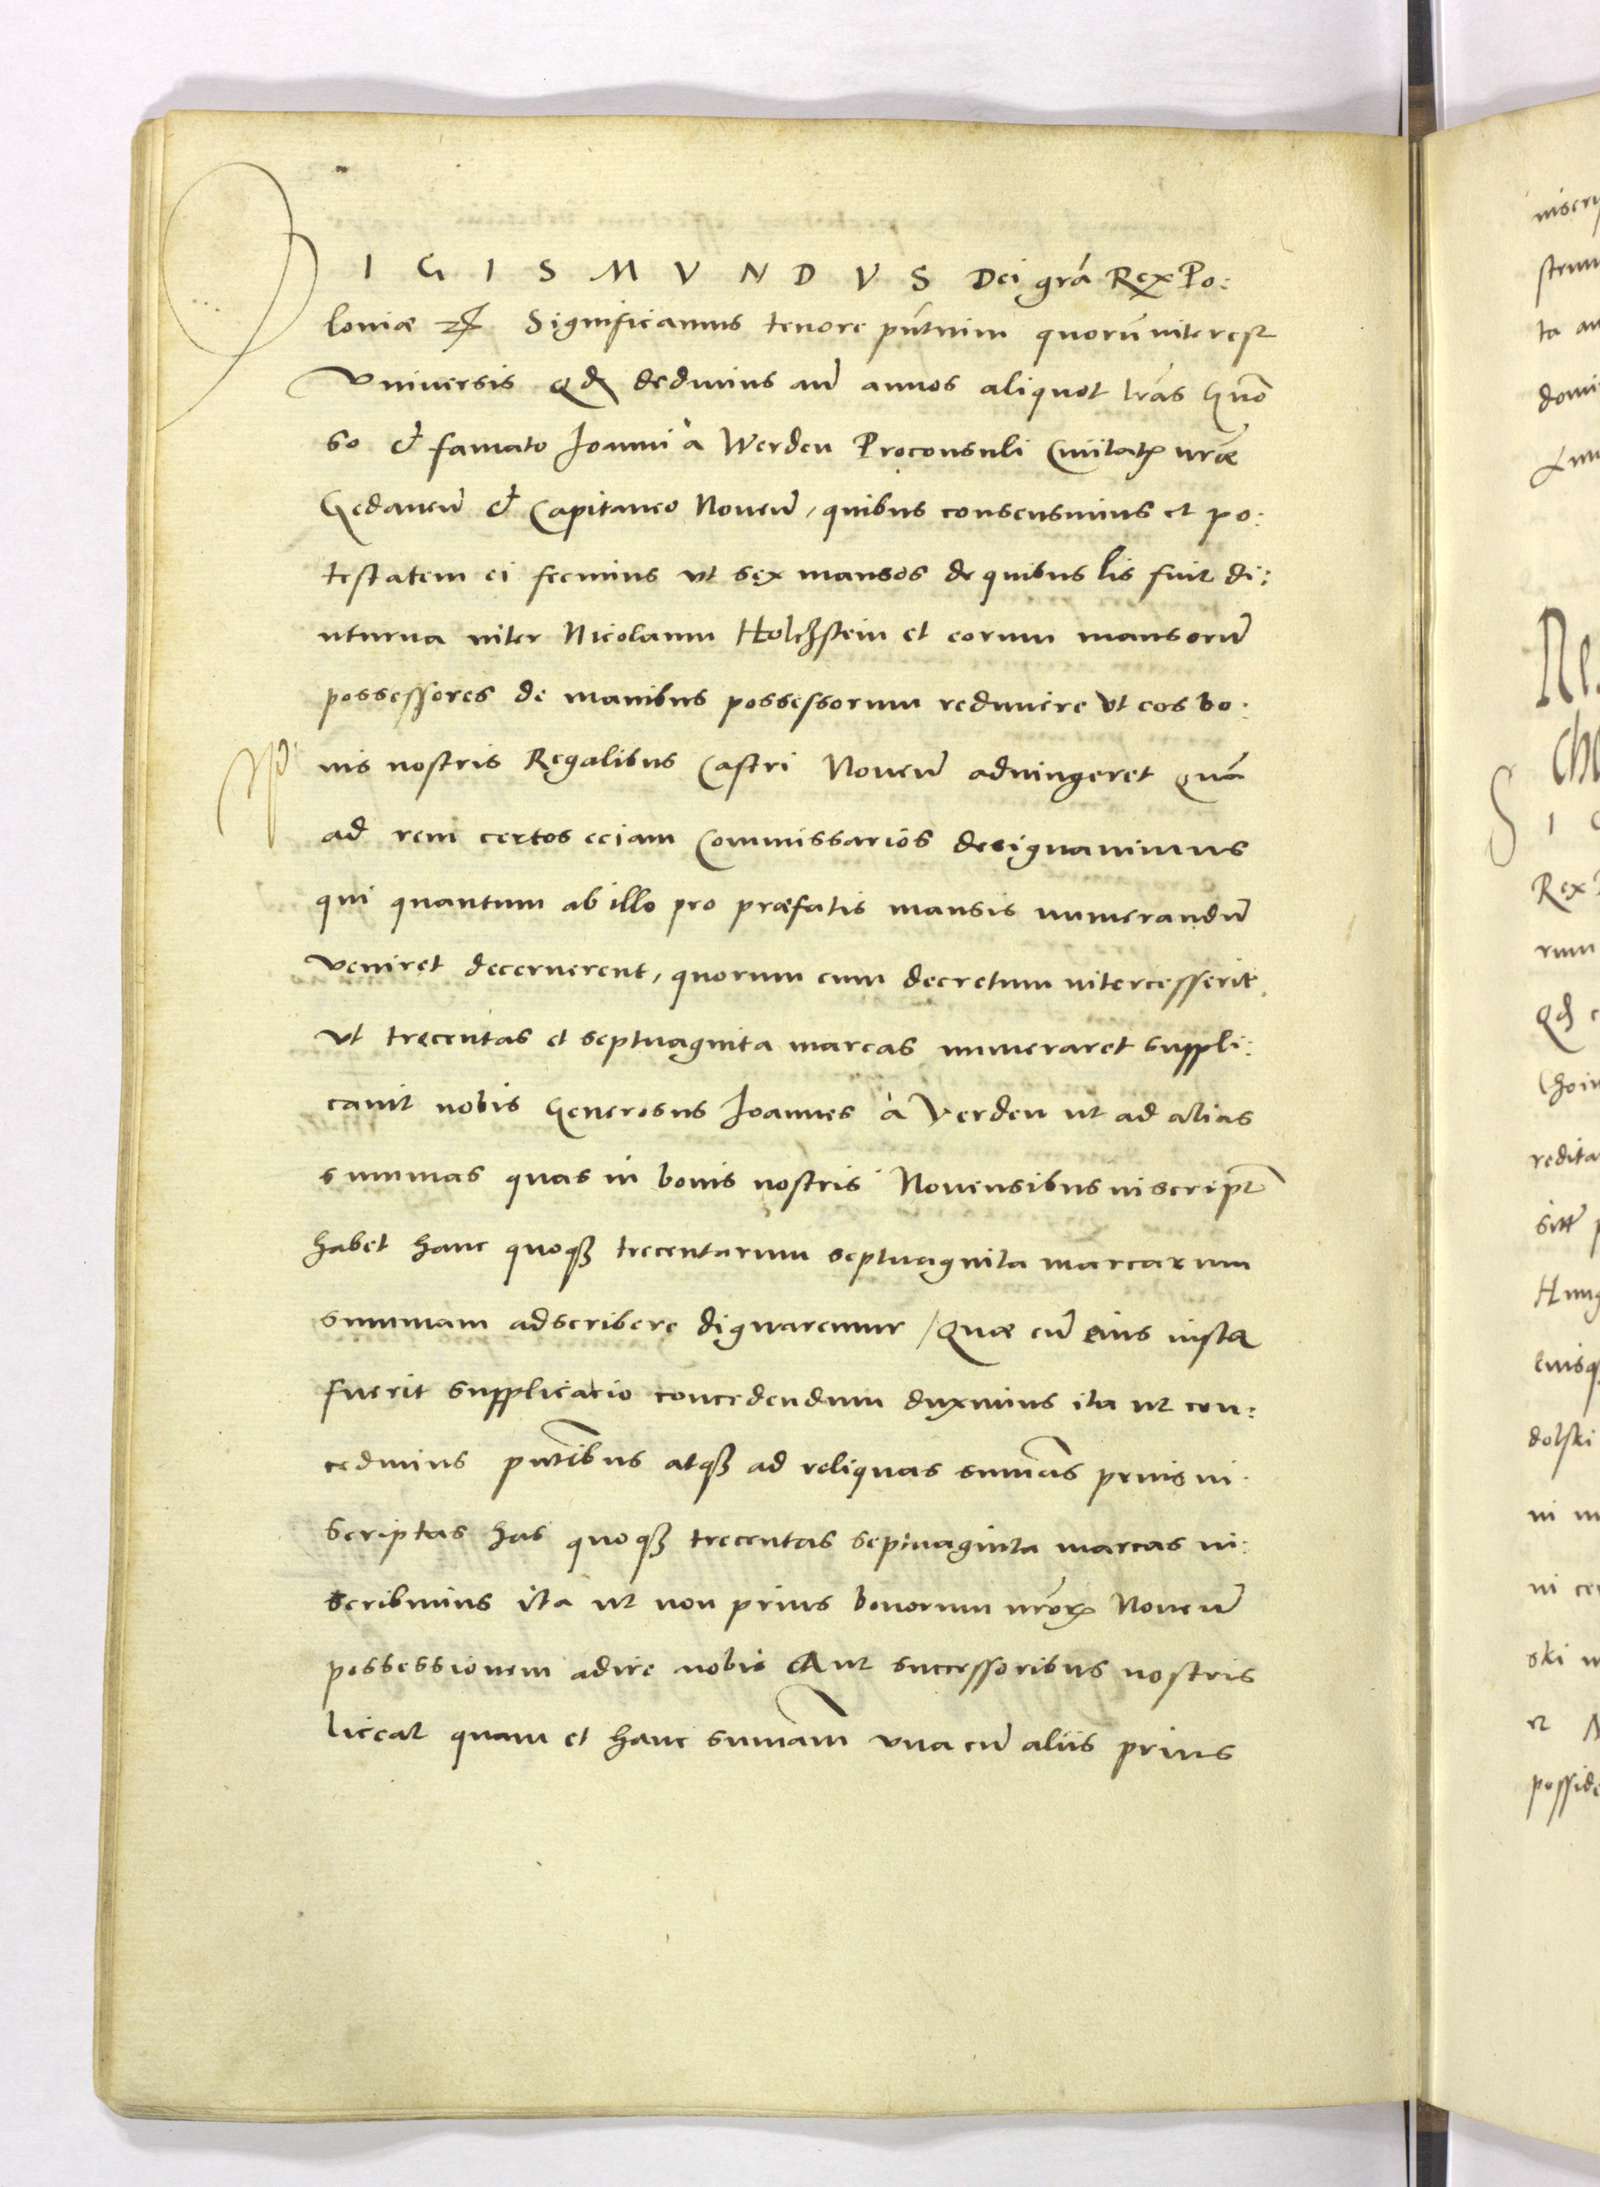 SIGISMVNDVS Dei grã Rex Po:
loniæ &c Significamus tenore pñtium quorũ interest
Vniversis Qd dedimus añ annos aliquot lrãs Gño
so & famato Joanni à Werden Proconsuli Civitatis nrãe
Gedaneñ & Capitaneo Noveñ, quibus consensimus et po:
testatem ei fecimus vt sex mansos de quibus lis fuit di:
uturna inter Nicolaum Holchstein et eorum mansorũ
possessores de manibus possessorum redimere vt eos bo:
nis nostris Regalibus Castri Noveñ adiungeret Quã
ad rem certos eciam Commissarios designavimus
qui quantum ab illo pro præfatis mansis numerandũ
veniret decernerent, quorum cum decretum intercesserit
vt trecentas et septuaginta marcas numeraret suppli:
cavit nobis Generosus Joannes à Verden ut ad alias
summas quas in bonis nostris Novensibus inscript
habet hanc quoqz trecentarum septuaginta marcarum
summam adscribere dignaremur / Quæ cũ eius iusta
fuerit supplicatio concedendum duximus ita ut con:
cedimus pñtibus atqz ad reliquas summas prius in
scriptas has quoqz trecentas septuaginta marcas in:
scribimus ita ut non prius bonorum nrõrum Noveñ
possessionem adire nobis Aut successoribus nostris
liceat quam et hanc summam vna cũ aliis prius